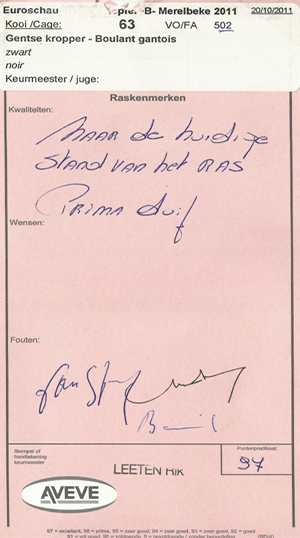 Euroschau ple. -B- Merelbeke 2011 20/10/2011
Kooi /Cage: 63 VO/FA 502
Gentse kropper - Boulant gantois
zwart
noir
Keurmeester / juge:
Raskenmerken
Kwaliteiten:
NAAR de huidige
STAND VAN het RAS
PRIMA duif
Wensen:
Fouten:
Stempel of
handtekening
keurmeester
LEETEN RIK
Puntenpredikaat:
97
AVEVE
97 = excellent, 96 = prima, 95 = zeer goed, 94 = zeer goed, 93 = zeer goed, 92 = goed
91 = vrij goed, 90 = voldoende, 0 = onvoldoende / zonder beoordeling